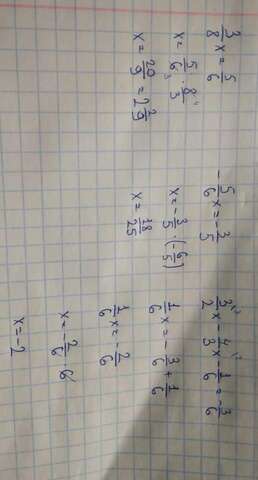 3/8 x = 5/6
x = 5/6₃ · 8⁴/3
x = 20/9 = 2 2/9
-5/6 x = -3/5
x = -3/5 · (-6/5)
x = 18/25
3/2 x - 4/3 x - 1/6 = -3/6
1/6 x = -3/6 + 1/6
1/6 x = -2/6
x = -2/6 · 6
x = -2